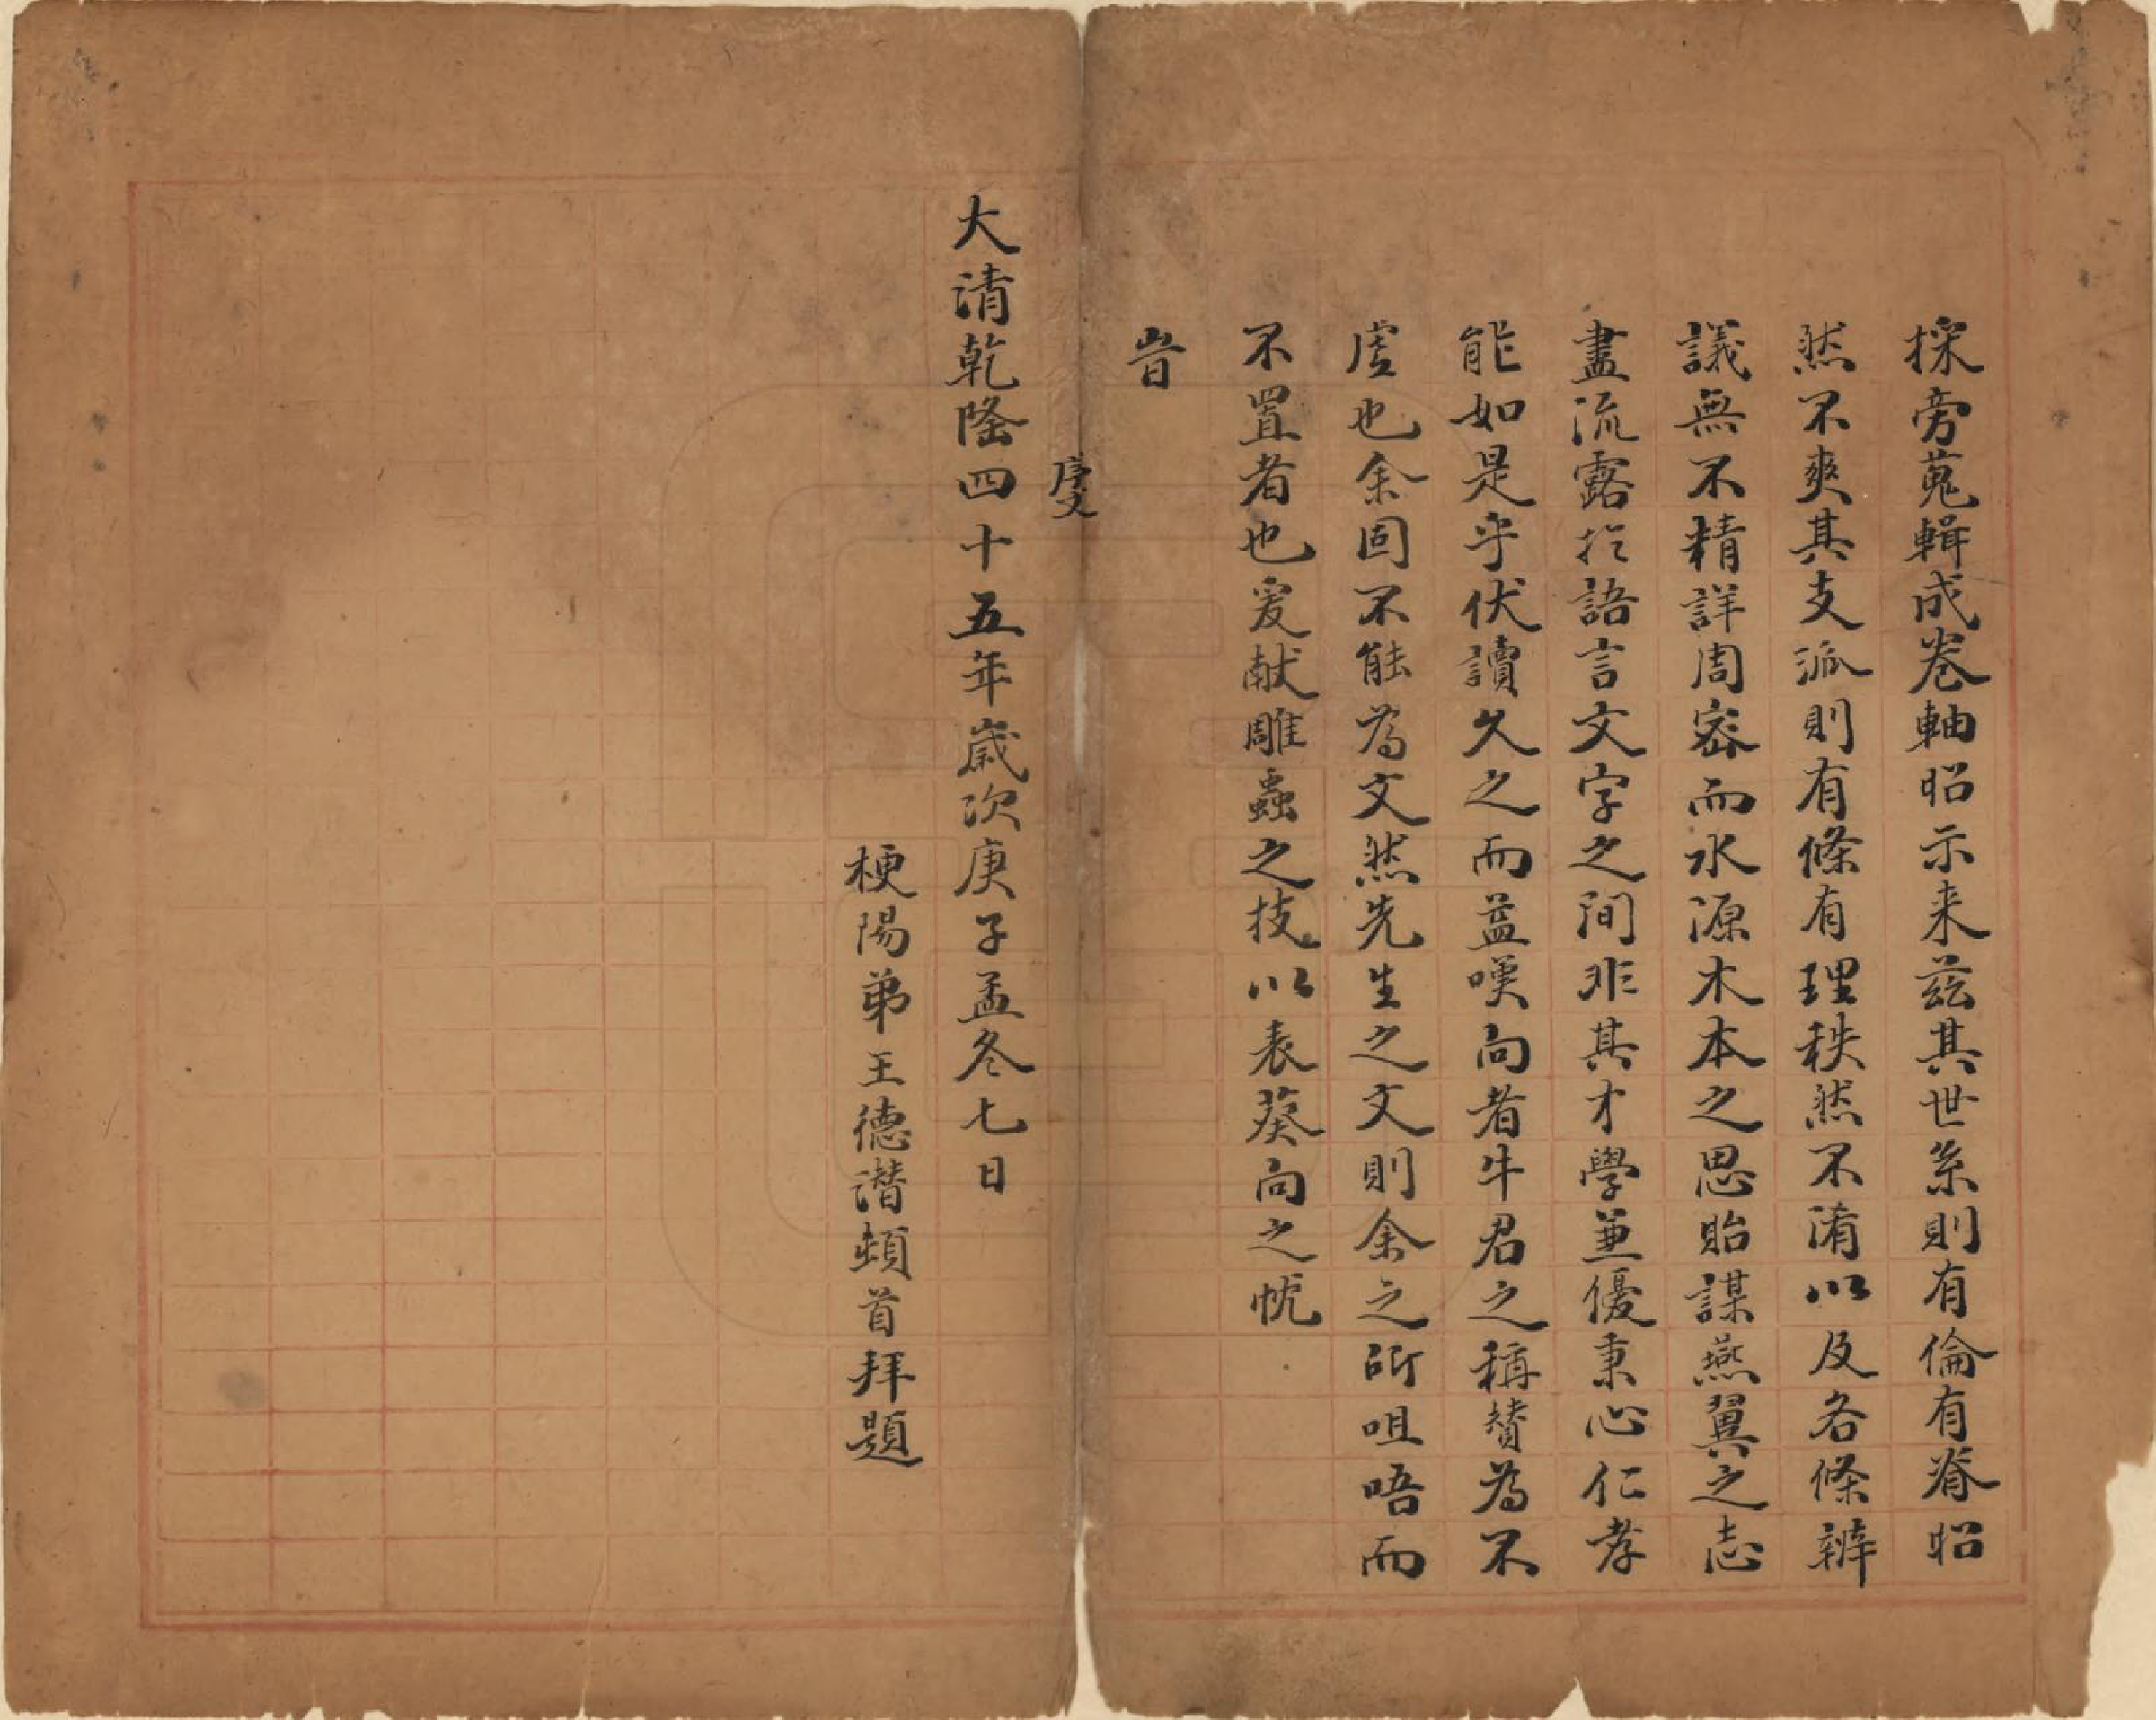 採旁蒐輯成卷軸昭示来茲其世系則有倫有脊昭
然不爽其支派則有條有理秩然不淆以及各條辨
議無不精詳周密而水源木本之思貽謀燕翼之志
盡流露於語言文字之間非其才學兼優秉心仁孝
能如是乎伏讀久之而益嘆向者牛君之稱賛為不
虛也余固不能為文然先生之文則余之所咀唔而
不置者也爰献雕蟲之技以表葵向之忱
旹
序文
大清乾隆四十五年歲次庚子孟冬七日
梗陽弟王德潜頓首拜題